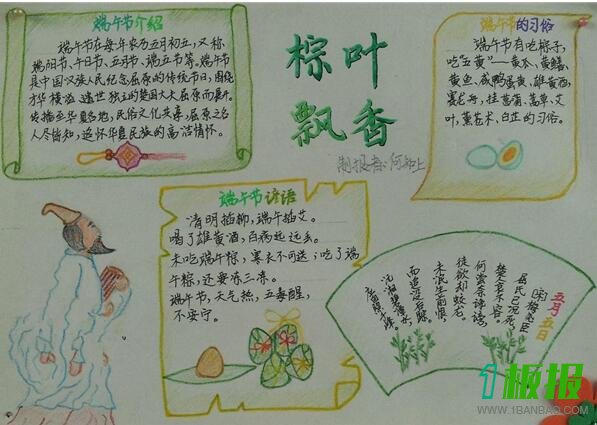 端午节介绍
端午节在每年农历五月初五,又称
端阳节、午日节、五月节、端五节等。端午节
是中国汉族人民纪念屈原的传统节日,围绕
才华横溢、遗世独立的楚国大夫屈原而展开,
传播至华夏各地,民俗文化共享,屈原之名
人尽皆知,追怀华夏民族的高洁情怀。
棕叶
飘香
制报者:何
端午节的习俗
端午节有吃粽子,
吃"五黄"——黄瓜、黄鳝、
黄鱼、咸鸭蛋黄、雄黄酒,
赛龙舟,挂菖蒲、蒿草、艾
叶,薰苍术、白芷的习俗。
端午节谚语
清明插柳,端午插艾。
喝了雄黄酒,百病远远丢。
未吃端午粽,寒衣不可送;吃了端
午粽,还要冻三冻。
端午节,天气热,五毒醒,
不安宁。
五月五日
宋 梅尧臣
屈氏已沉死,
楚人哀不容。
何尝奈谗谤,
徒欲却蛟龙。
未泯生前恨,
而追没后踪。
沅湘碧潭水,
1板报
WWW.1BANBAO.COM